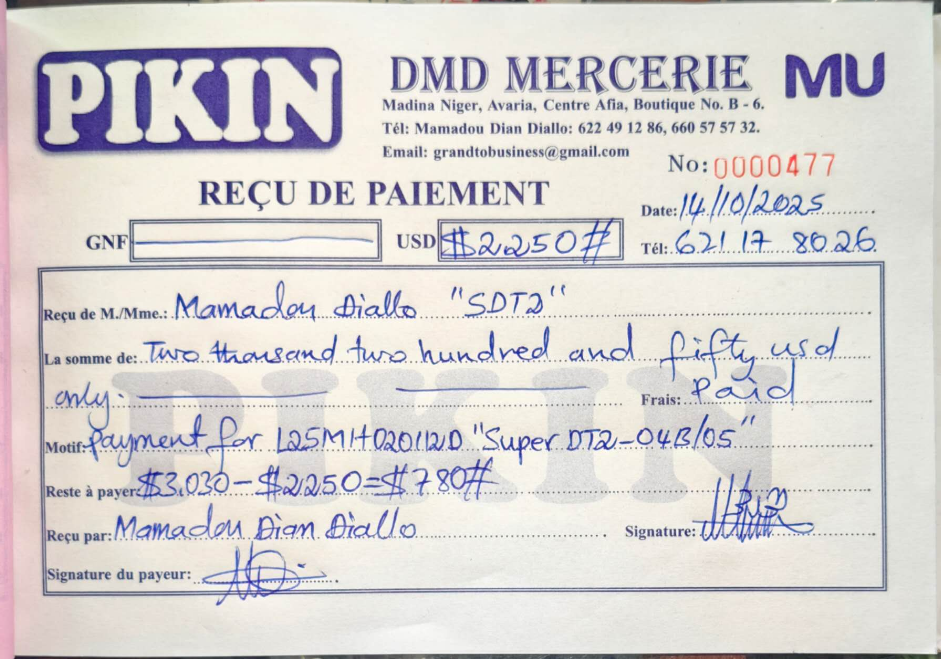 PIKIN
DMD MERCERIE
MU
Madina Niger, Avaria, Centre Afia, Boutique No. B - 6.
Tél: Mamadou Dian Diallo: 622 49 12 86, 660 57 57 32.
Email: grandtobusiness@gmail.com
No: 0000477
REÇU DE PAIEMENT
Date: 14/10/2025
GNF
USD $2.250#
Tél: 621 17 80 26
Reçu de M./Mme.: Mamadou Diallo "SDT2"
La somme de: Two thousand two hundred and fifty usd
only.
Frais: Paid
Motif: payment for L25MH020112D "Super DT2-04B/05"
Reste à payer: $3.030-$2250=$780#
Reçu par: Mamadou Dian Diallo
Signature:
Signature du payeur:
PIKIN